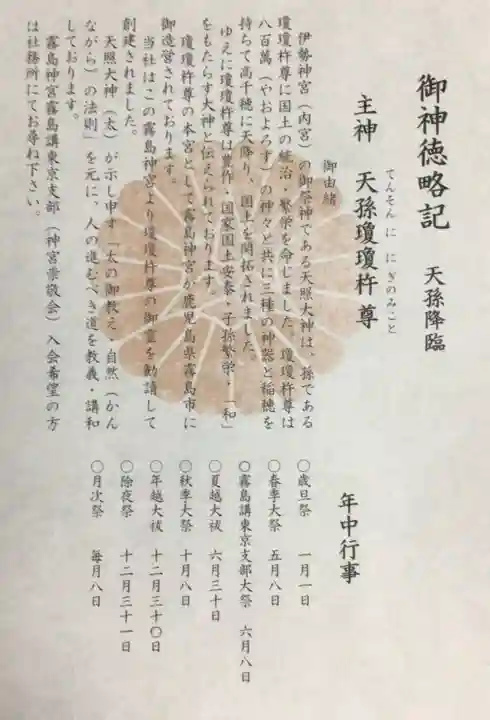 御神徳略記　天孫降臨
てんそん に にぎのみこと
主神　天孫瓊瓊杵尊
御由緒
伊勢神宮（内宮）の御祭神である天照大神は、孫である
瓊瓊杵尊に国土の統治、繁栄を命じました。瓊瓊杵尊は
八百萬（やおよろず）の神々と共に三種の神器と稲穂を
持ちて高千穂に天降り、国土を開拓されました。
ゆえに瓊瓊杵尊は豊作・国家国土安泰・子孫繁栄・「和」
をもたらす大神と伝えられております。
瓊瓊杵尊の本宮として霧島神宮が鹿児島県霧島市に
御造営されております。
当社はこの霧島神宮より瓊瓊杵尊の御霊を勧請して
創建されました。
天照大神（太）が示し申す「太の御教え・自然（かん
ながら）の法則」を元に、人の進むべき道を教義・講和
しております。
霧島神宮霧島講東京支部（神宮崇敬会）入会希望の方
は社務所にてお尋ね下さい。
年中行事
〇歳旦祭　一月一日
〇春季大祭　五月八日
〇霧島講東京支部大祭　六月八日
〇夏越大祓　六月三十日
〇秋季大祭　十月八日
〇年越大祓　十二月三十〇日
〇除夜祭　十二月三十一日
〇月次祭　毎月八日